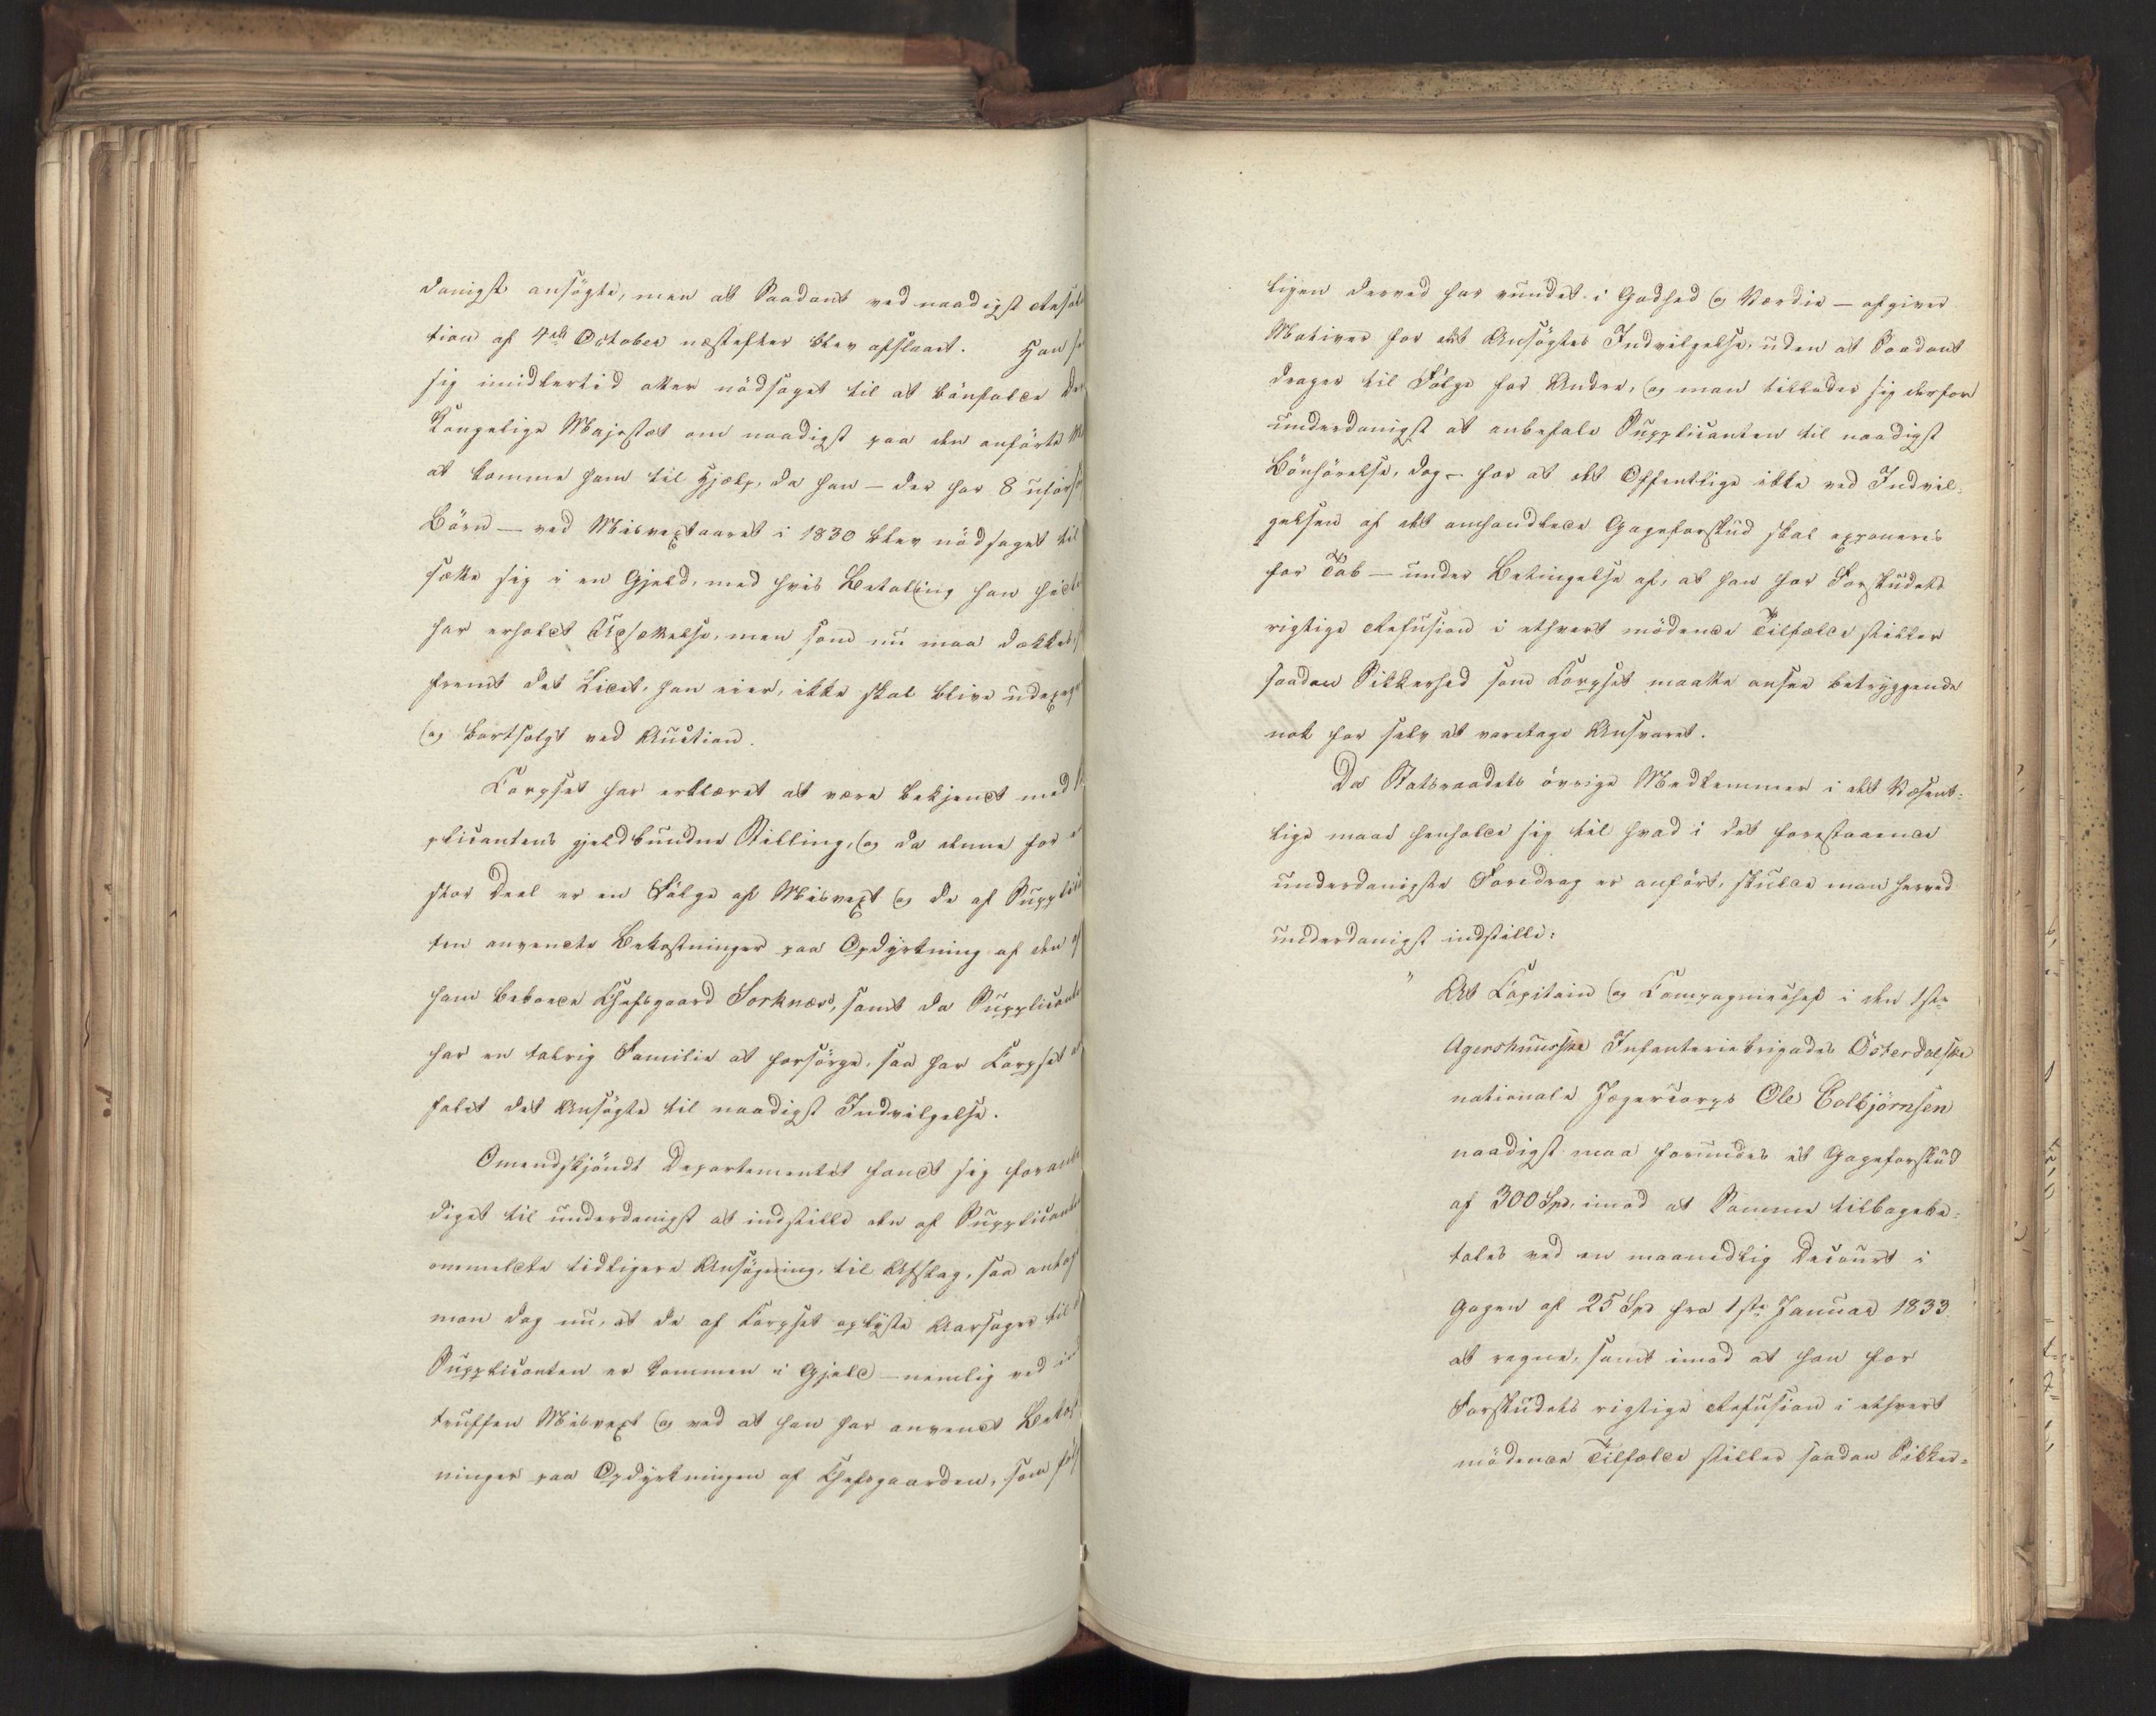 danigst ansögte, men at Saadant ved naadigst Resolu
tion af 4de October næstefter blev afslaaet. Han
sig imidlertid atter nödsaget til at bönfalde
Kongelige Majestæt om naadigst paa den anförte
at komme ham til Hjælp, da han — der har 8 uforsö
Börn — ved Misvextaaret i 1830 blev nödsaget til
sætte sig i en Gjeld, med hvis Betaling han hid
har erholdt Udsættelse, men som nu maa dækkes
fremt det Lidet, han eier, ikke skal blive udpa
og bortsolgt ved Auction.
Corpset har erklæret at være bekjendt med
plicantens gjeldbundne Stilling, og da denne for
stor Deel er en Fölge af Misvext og de af Supplic
ten anvendte Bekostninger paa Opdyrkning af den
ham beboede Chefsgaard Sorknæs, samt da Supplicant
har en talrig Familie at forsörge, saa har Corpset
falet det Ansögte til naadigst Indvilgelse.
Omendskjöndt Departementet fandt sig foran
diget til underdanigst at indstille den af Supplicant
ommeldte tidligere Ansögning, til Afslag, saa antag
man dog nu, at de af Corpset oplyste Aarsager til
Supplicanten er kommen i Gjeld — nemlig ved ind
truffen Misvext og ved at han har anvendt Bekost
ninger paa Opdyrkningen af Chefsgaarden, som föl
ligen derved har vundet i Godhed og Værdie — afgiver
Motiver for det Ansögtes Indvilgelse, uden at Saadant
drager til Fölge for Andre, og man tillader sig derfor
underdanigst at anbefale Supplicanten til naadigst
Bönhörelse, dog — for at det Offentlige ikke ved Indvil-
gelsen af det omhandlede Gageforskud skal exponeres
for Tab — under Betingelse af, at han for Forskudets
rigtige Refusion i ethvert mödende Tilfælde stiller
saadan Sikkerhed som Corpset maatte ansee betryggende
nok for selv at varetage Ansvaret.
Da Statsraadets övrige Medlemmer i det Væsent-
lige maae henholde sig til hvad i det forestaaende
underdanigste Foredrag er anfört, skulde man herved
underdanigst indstille:
" At Capitain og Compagniechef i den 1ste
Agershuusske Infanteriebrigades Österdalske
nationale Jægercorps Ole Colbjörnsen
naadigst maa forundes et Gageforskud
af 300 Spd, imod at Samme tilbagebe-
tales ved en maanedlig Decourt i
Gagen af 25 Spd fra 1ste Januar 1833
at regne, samt imod at han for
Forskudets rigtige Refusion i ethvert
mödende Tilfælde stiller saadan Sikker-